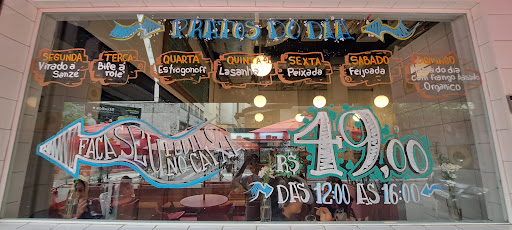 PRATOS DO DIA
SEGUNDA
Virado à
Sanzé
TERÇA
Bife à
rolê
QUARTA
Estrogonoff
QUINTA
Lasanha
SEXTA
Peixada
SABADO
Feijoada
do dia
com frango assado
Orgânico
FAÇA SEU
NO CAIXA
R$ 49,00
DAS 12:00 ÀS 16:00